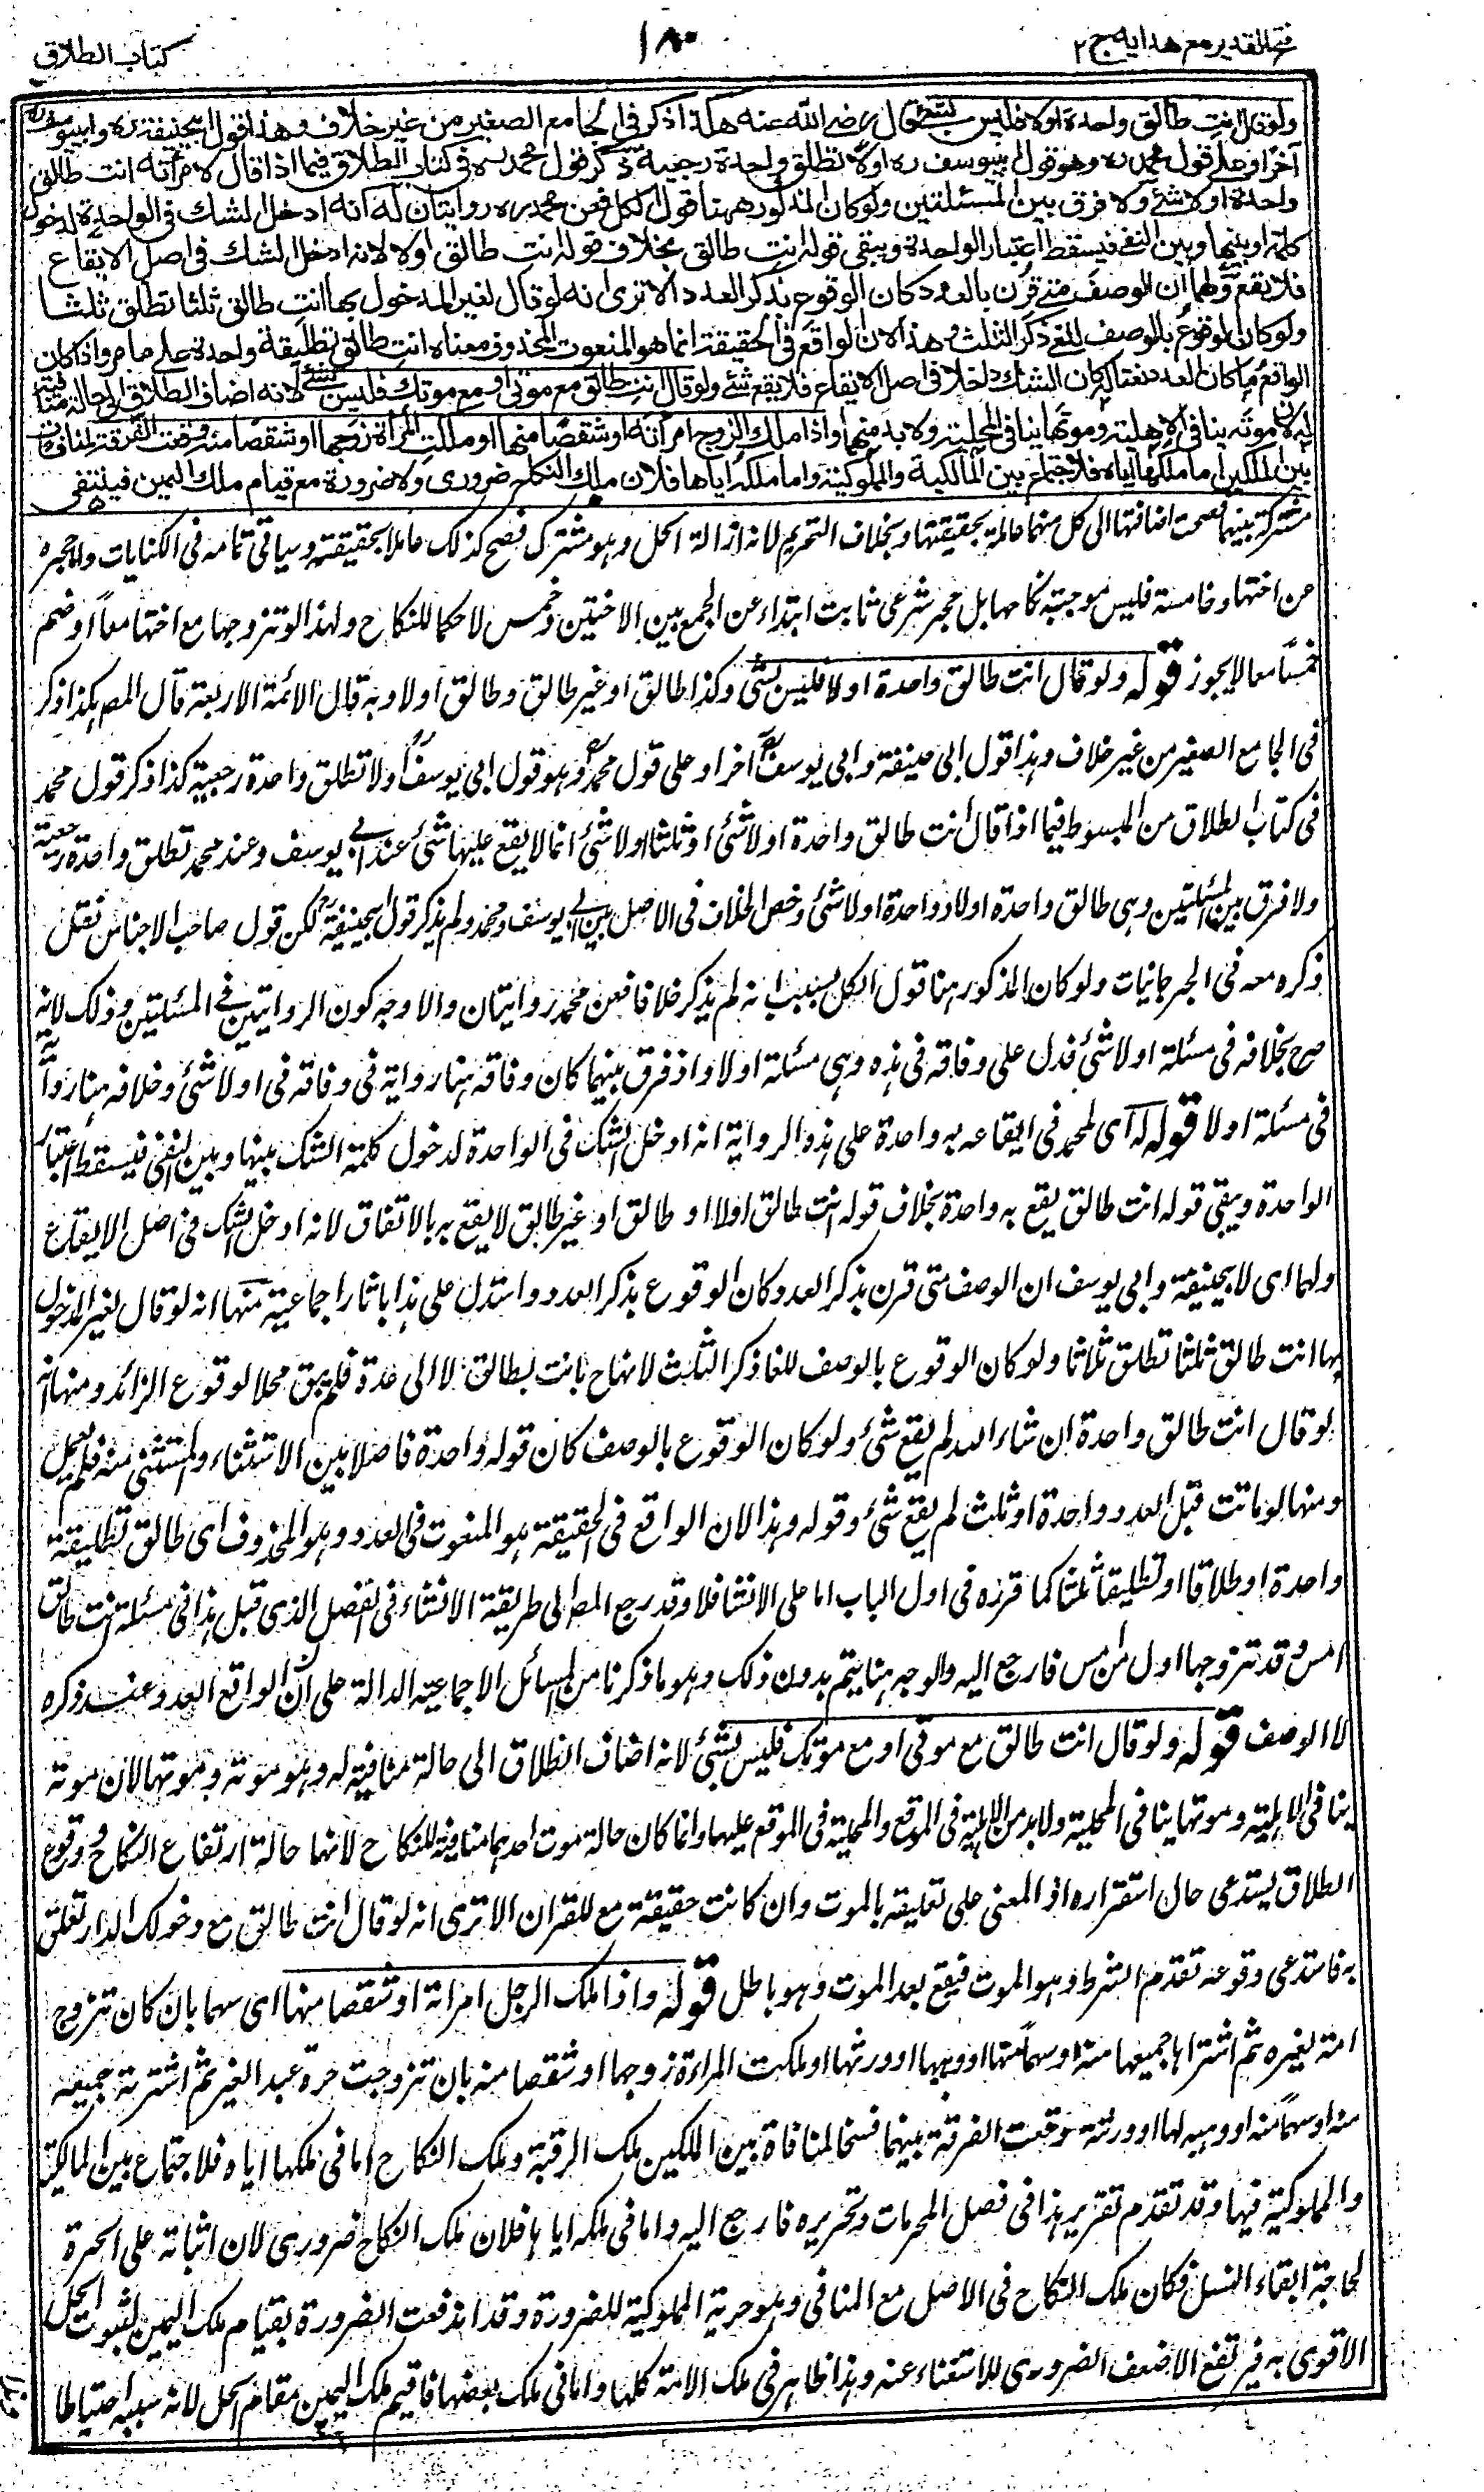 فتح القدير مع هدايه ج ٢
١٨٠
كتاب الطلاق
ولو قال انت طالق واحدة اولا فليس بشئ قال رضي الله عنه هكذا ذكر في الجامع الصغير من غير خلاف وهذا قول ابيحنيفة ره وابييوسف ره
آخرا وعلى قول محمد ره وهو قول ابييوسف ره اولا تطلق واحدة رجعية ذكر قول محمد ره في كتاب الطلاق فيما اذا قال لامرأته انت طالق
واحدة اولا شئ ولا فرق بين المسئلتين ولو كان المذكور ههنا قول الكل فعن محمد ره روايتان له انه ادخل الشك في الواحدة لدخول
كلمة او بينها وبين النفي فيسقط اعتبار الواحدة ويبقى قوله انت طالق بخلاف قوله انت طالق اولا لانه ادخل الشك في اصل الايقاع
فلا يقع ولهما ان الوصف متى قرن بالعدد كان الوقوع بذكر العدد الا ترى انه لو قال لغير المدخول بها انت طالق ثلثا تطلق ثلثا
ولو كان الوقوع بالوصف للغى ذكر الثلث وهذا لان الواقع في الحقيقة انما هو المنعوت المحذوف معناه انت طالق تطليقة واحدة على ما مر واذا كان
الواقع ما كان العدد نعتا له كان الشك داخلا في اصل الايقاع فلا يقع شئ ولو قال انت طالق مع موتى او مع موتك فليس بشئ لانه اضاف الطلاق الى حالة منافية
له لان موته ينافي الاهلية وموتها ينافي المحلية ولا بد منهما واذا ملك الزوج امرأته او شقصا منها او ملكت المرأة زوجها او شقصا منه وقعت الفرقة لمنافاة
بين الملكين اما ملكها اياه فلاجتماع بين المالكية والمملوكية واما ملكه اياها فلان ملك النكاح ضروري ولا ضرورة مع قيام ملك اليمين فينتفى
مشتركة بينهما فصحت اضافتها الى كل منهما عاملة بحقيقتها وبخلاف التحريم لانه ازالة الحل وهو مشترك فصح كذلك عاملا بحقيقته وسياقي تمامه في الكنايات والحجره
عن اختها وخامسة فليس موجب نكاحها بل حجر شرعي ثابت ابتداء عن الجمع بين الاختين وخمس لا حكما للنكاح ولهذا لو تزوجها مع اختها معا او ضم
خمسا معا لا يجوز قوله ولو قال انت طالق واحدة اولا فليس بشئ وكذا طالق او غير طالق وطالق اولا وبه قال الائمة الاربعة قال المص هكذا ذكر
في الجامع الصغير من غير خلاف وهذا قول ابي حنيفة وابي يوسف آخرا وعلى قول محمد وهو قول ابي يوسف اولا تطلق واحدة رجعية كذا ذكر قول محمد
في كتاب الطلاق من المبسوط فيما اذا قال انت طالق واحدة اولا شئ او ثلثا اولا شئ انما لا يقع عليها شئ عند ابي يوسف وعند محمد تطلق واحدة رجعية
ولا فرق بين المسئلتين وهي طالق واحدة اولا وواحدة اولا شئ وخص الخلاف في الاصل بين ابي يوسف ومحمد ولم يذكر قول ابيحنيفة لكن قول صاحب الاجناس نقل
ذكره معه في الجرجانيات ولو كان المذكور هنا قول الكل بسبب انه لم يذكر خلافا فعن محمد روايتان والاوجه كون الروايتين في المسئلتين وذلك لانه
صرح بخلافه في مسئلة اولا شئ فدل على وفاقه في هذه وهي مسئلة اولا واذ فرق بينهما كان وفاقه هنا رواية في وفاقه في اولا شئ وخلافه هنا رواية
في مسئلة اولا قوله له اى لمحمد في ايقاعه به واحدة على هذه الرواية انه ادخل الشك في الواحدة لدخول كلمة الشك بينها وبين النفي فيسقط اعتبار
الواحدة ويبقى قوله انت طالق يقع به واحدة بخلاف قوله انت طالق اولا او طالق او غير طالق لا يقع به بالاتفاق لانه ادخل الشك في اصل الايقاع
ولهما اى لابيحنيفة وابي يوسف ان الوصف متى قرن بذكر العدد كان الوقوع بذكر العدد واستدل على هذا باثار اجماعية منها انه لو قال لغير المدخول
بها انت طالق ثلثا تطلق ثلاثا ولو كان الوقوع بالوصف للغا ذكر الثلث لانها ح بانت بطالق لا الى عدة فلم يبق محلا لوقوع الزائد ومنها انه
لو قال انت طالق واحدة ان شاء الله لم يقع شئ ولو كان الوقوع بالوصف كان قوله واحدة فاصلا بين الاستثناء والمستثنى منه فلم يعمل
ومنها لو ماتت قبل العدد واحدة او ثلث لم يقع شئ وقوله وهذا لان الواقع في الحقيقة هو المنعوت في العدد وهو المحذوف اى طالق تطليقة
واحدة او طلاقا او تطليقا ثلثا كما قرره في اول الباب اما على الانشا فلا وقد رجع المص الى طريقة الانشاء في الفصل الذي قبل هذا في مسئلة انت طالق
امس وقد تزوجها اول من امس فارجع اليه والوجه هنا يتم بدون ذلك وهو ما ذكرنا من المسائل الاجماعية الدالة على ان الواقع العدد عند ذكره
لا الوصف قوله ولو قال انت طالق مع موتى او مع موتك فليس بشئ لانه اضاف الطلاق الى حالة منافية له وهو موته وموتها لان موته
ينافى الاهلية وموتها ينافى المحلية ولا بد من الاهلية في الموقع والمحلية في الموقع عليها وانما كان حالة موت احدهما منافية للنكاح لانها حالة ارتفاع النكاح ووقوع
الطلاق يستدعى حال استقراره اذ المعنى على تعليقه بالموت وان كانت حقيقة مع للقران الا ترى انه لو قال انت طالق مع دخولك الدار تعلق
به فاستدعى وقوعه تقدم الشرط وهو الموت فيقع بعد الموت وهو باطل قوله واذا ملك الرجل امرأته او شقصا منها اى سهما بان كان تزوج
امة لغيره ثم اشتراها جميعها منه او سهما منها او وهبها او ورثها او ملكت المراءة زوجها او شقصا منه بان تزوجت حرة عبد الغير ثم اشترته جميعه
منه او سهما منه او وهبه لها او ورثته وقعت الفرقة بينهما فسخا لمنافاة بين الملكين ملك الرقبة وملك النكاح اما في ملكها اياه فلاجتماع بين المالكية
والمملوكية فيها وقد تقدم تقرير هذا في فصل المحرمات وتحريره فارجع اليه واما في ملكه اياها فلان ملك النكاح ضرورى لان اثباته على الحرة
لحاجة ابقاء النسل فكان ملك النكاح في الاصل مع المنافى وهو حرية المملوكية للضرورة وقد اندفعت الضرورة بقيام ملك اليمين لثبوت الحل
الاقوى به فيرتفع الاضعف الضرورى للاستغناء عنه وهذا ظاهر في ملك الامة كلها واما في ملك بعضها فاقيم ملك اليمين مقام الحل لانه سببه احتياطا